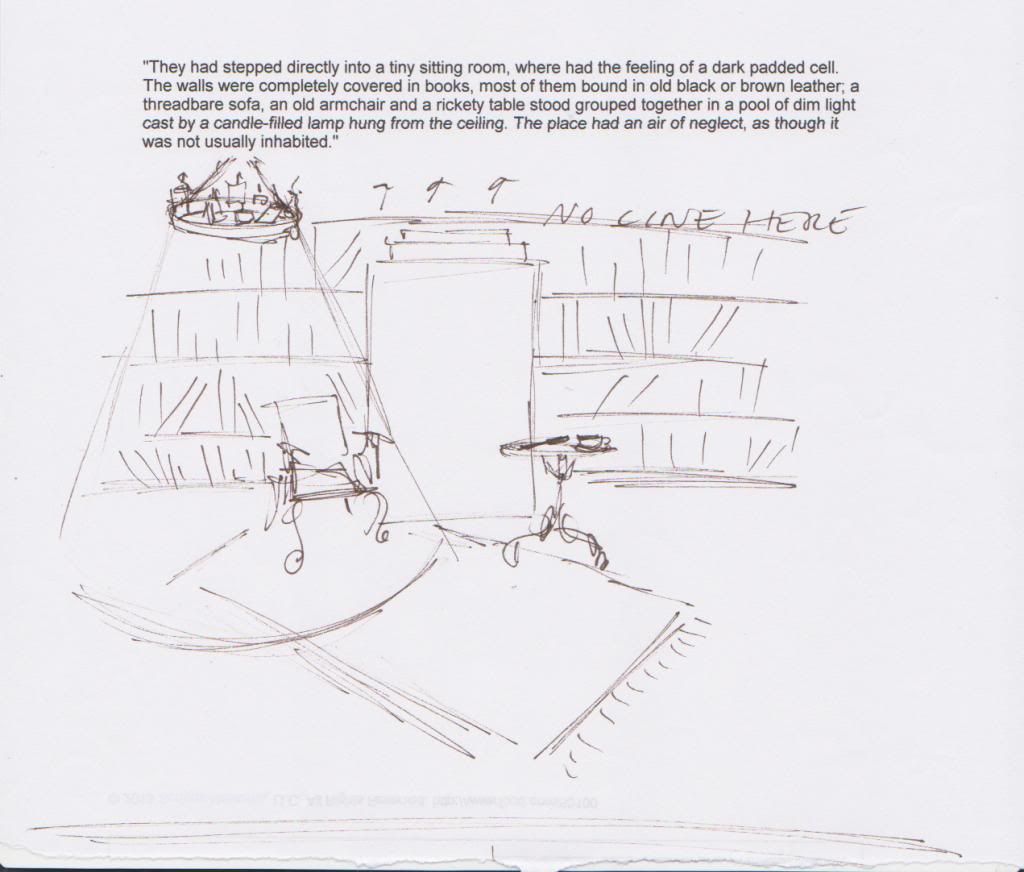 "They had stepped directly into a tiny sitting room, where had the feeling of a dark padded cell.
The walls were completely covered in books, most of them bound in old black or brown leather; a
threadbare sofa, an old armchair and a rickety table stood grouped together in a pool of dim light
cast by a candle-filled lamp hung from the ceiling. The place had an air of neglect, as though it
was not usually inhabited."
NO LINE HERE